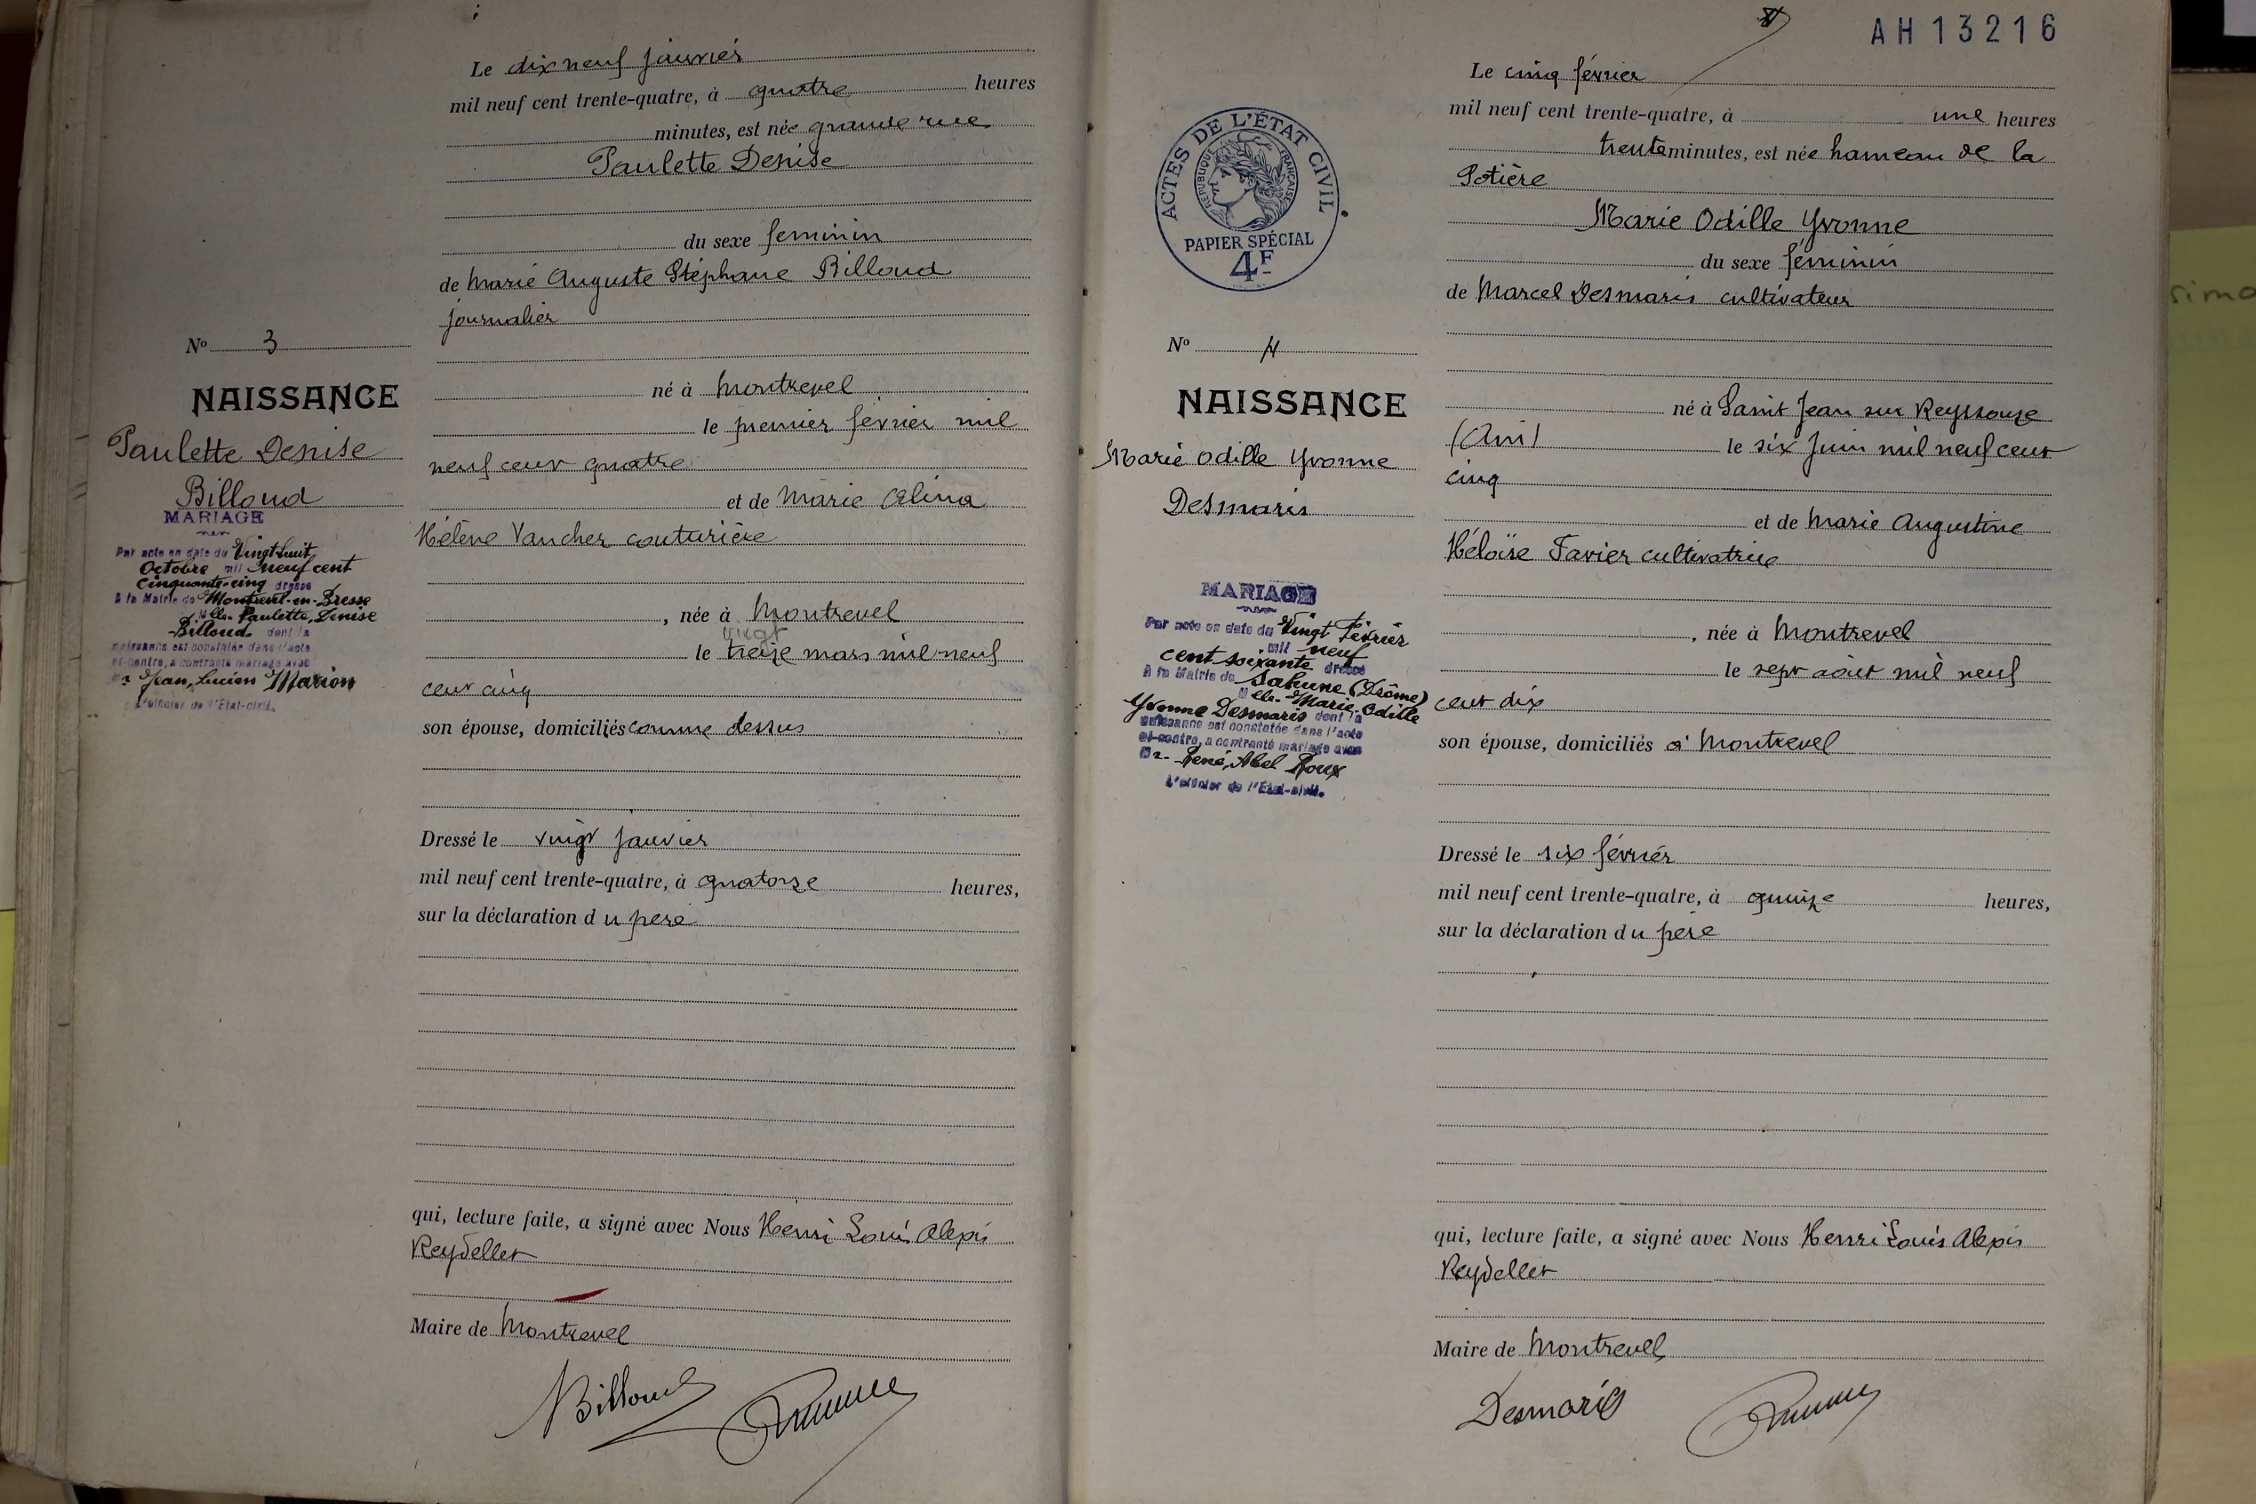 Le dix neuf janvier
mil neuf cent trente-quatre, à quatre heures
minutes, est née grande rue
Paulette Denise
du sexe feminin
de Marie Auguste Stéphane Billoud
journalier
né à Montrevel
le premier février mil
neuf cent quatre
et de Marie Celina
Hélène Vaucher couturière
, née à Montrevel
vingt
le treize mars mil neuf
cent cinq
son épouse, domiciliés comme dessus
Dressé le vingt janvier
mil neuf cent trente-quatre, à quatorze heures,
sur la déclaration du père
qui, lecture faite, a signé avec Nous Henri Louis Alexis
Reydellet
Maire de Montrevel
Billoud
No 3
NAISSANCE
Paulette Denise
Billoud
MARIAGE
Par acte en date du Vingt huit
Octobre mil neuf cent
Cinquante-cinq dressé
à la Mairie de Montrevel-en-Bresse
Mlle Paulette, Denise
Billoud dont la
naissance est constatée dans l'acte
ci-contre, a contracté mariage avec
Mr Jean, Lucien Marion
L'officier de l'Etat-civil.
AH13216
Le cinq février
mil neuf cent trente-quatre, à une heures
trente minutes, est née hameau de la
Potière
Marie Odille Yvonne
du sexe féminin
de Marcel Desmaris cultivateur
né à Saint Jean sur Reyssouze
(Ain) le six Juin mil neuf cent
cinq
et de Marie Augustine
Héloïse Favier cultivatrice
, née à Montrevel
le sept août mil neuf
cent dix
son épouse, domiciliés à Montrevel
Dressé le six février
mil neuf cent trente-quatre, à quinze heures,
sur la déclaration du père
qui, lecture faite, a signé avec Nous Henri Louis Alexis
Reydellet
Maire de Montrevel
Desmaris
ACTES DE L'ÉTAT CIVIL
RÉPUBLIQUE FRANÇAISE
PAPIER SPÉCIAL
4F
No 4
NAISSANCE
Marie Odille Yvonne
Desmaris
MARIAGE
Par acte en date du Vingt Février
mil neuf
cent soixante dressé
à la Mairie de Sahune (Drôme)
Mlle Marie, Odille
Yvonne Desmaris dont la
naissance est constatée dans l'acte
ci-contre, a contracté mariage avec
Mr René, Abel Roux
L'officier de l'Etat-civil.